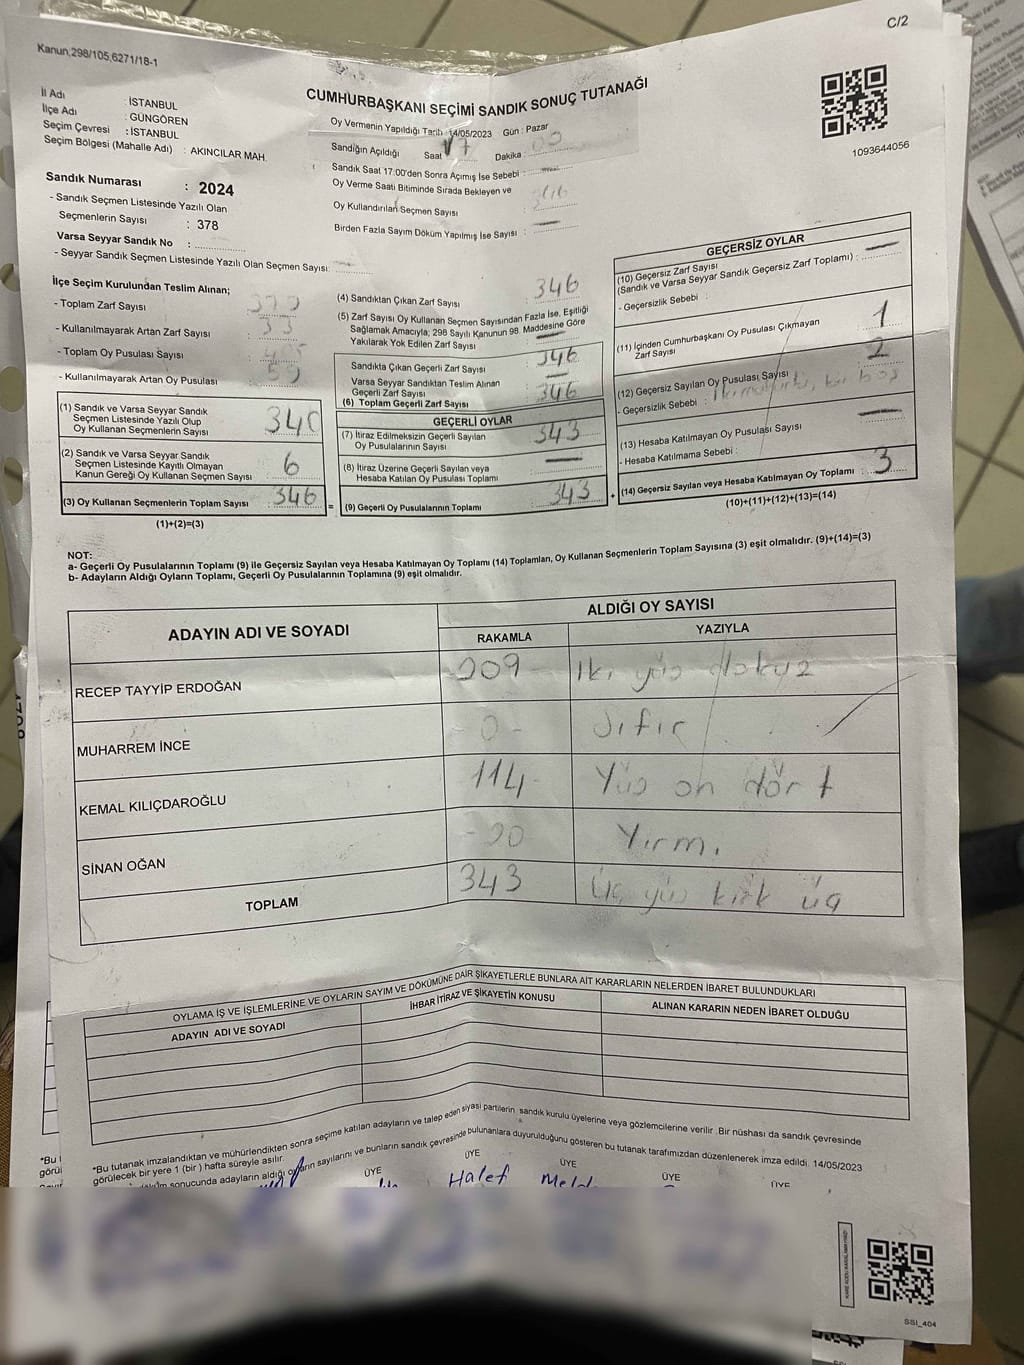 C/2
Kanun,298/105,6271/18-1
CUMHURBAŞKANI SEÇİMİ SANDIK SONUÇ TUTANAĞI
İl Adı : İSTANBUL
İlçe Adı : GÜNGÖREN
Seçim Çevresi : İSTANBUL
Seçim Bölgesi (Mahalle Adı) : AKINCILAR MAH.
Oy Vermenin Yapıldığı Tarih 14/05/2023 Gün : Pazar
Sandığın Açıldığı Saat 17 Dakika : 00
Sandık Saat 17:00'den Sonra Açımış İse Sebebi :
Oy Verme Saati Bitiminde Sırada Bekleyen ve
Oy Kullandırılan Seçmen Sayısı : 346
Birden Fazla Sayım Döküm Yapılmış İse Sayısı : —
1093644056
Sandık Numarası : 2024
- Sandık Seçmen Listesinde Yazılı Olan
Seçmenlerin Sayısı : 378
Varsa Seyyar Sandık No :
- Seyyar Sandık Seçmen Listesinde Yazılı Olan Seçmen Sayısı: —
İlçe Seçim Kurulundan Teslim Alınan;
- Toplam Zarf Sayısı :
- Kullanılmayarak Artan Zarf Sayısı : 33
- Toplam Oy Pusulası Sayısı :
- Kullanılmayarak Artan Oy Pusulası : 59
(1) Sandık ve Varsa Seyyar Sandık
Seçmen Listesinde Yazılı Olup
Oy Kullanan Seçmenlerin Sayısı : 340
(2) Sandık ve Varsa Seyyar Sandık
Seçmen Listesinde Kayıtlı Olmayan
Kanun Gereği Oy Kullanan Seçmen Sayısı : 6
(3) Oy Kullanan Seçmenlerin Toplam Sayısı : 346
(1)+(2)=(3)
(4) Sandıktan Çıkan Zarf Sayısı : 346
(5) Zarf Sayısı Oy Kullanan Seçmen Sayısından Fazla İse, Eşitliği
Sağlamak Amacıyla; 298 Sayılı Kanunun 98. Maddesine Göre
Yakılarak Yok Edilen Zarf Sayısı : —
Sandıkta Çıkan Geçerli Zarf Sayısı : 346
Varsa Seyyar Sandıktan Teslim Alınan
Geçerli Zarf Sayısı : —
(6) Toplam Geçerli Zarf Sayısı : 346
GEÇERLİ OYLAR
(7) İtiraz Edilmeksizin Geçerli Sayılan
Oy Pusulalarının Sayısı : 343
(8) İtiraz Üzerine Geçerli Sayılan veya
Hesaba Katılan Oy Pusulası Toplamı : —
= (9) Geçerli Oy Pusulalarının Toplamı : 343
GEÇERSİZ OYLAR
(10) Geçersiz Zarf Sayısı
(Sandık ve Varsa Seyyar Sandık Geçersiz Zarf Toplamı) : —
- Geçersizlik Sebebi :
(11) İçinden Cumhurbaşkanı Oy Pusulası Çıkmayan
Zarf Sayısı : 1
(12) Geçersiz Sayılan Oy Pusulası Sayısı : 2
- Geçersizlik Sebebi : bir boş
(13) Hesaba Katılmayan Oy Pusulası Sayısı : —
- Hesaba Katılmama Sebebi :
+ (14) Geçersiz Sayılan veya Hesaba Katılmayan Oy Toplamı : 3
(10)+(11)+(12)+(13)=(14)
NOT:
a- Geçerli Oy Pusulalarının Toplamı (9) ile Geçersiz Sayılan veya Hesaba Katılmayan Oy Toplamı (14) Toplamları, Oy Kullanan Seçmenlerin Toplam Sayısına (3) eşit olmalıdır. (9)+(14)=(3)
b- Adayların Aldığı Oyların Toplamı, Geçerli Oy Pusulalarının Toplamına (9) eşit olmalıdır.
ADAYIN ADI VE SOYADI
ALDIĞI OY SAYISI
RAKAMLA YAZIYLA
RECEP TAYYİP ERDOĞAN 209 İki yüz dokuz
MUHARREM İNCE - 0 - Sıfır
KEMAL KILIÇDAROĞLU 114 Yüz on dört
SİNAN OĞAN - 20 Yirmi
TOPLAM 343 Üç yüz kırk üç
OYLAMA İŞ VE İŞLEMLERİNE VE OYLARIN SAYIM VE DÖKÜMÜNE DAİR ŞİKAYETLERLE BUNLARA AİT KARARLARIN NELERDEN İBARET BULUNDUKLARI
ADAYIN ADI VE SOYADI İHBAR İTİRAZ VE ŞİKAYETİN KONUSU ALINAN KARARIN NEDEN İBARET OLDUĞU
*Bu tutanak imzalandıktan ve mühürlendikten sonra seçime katılan adayların ve talep eden siyasi partilerin sandık kurulu üyelerine veya gözlemcilerine verilir. Bir nüshası da sandık çevresinde
görülecek bir yere 1 (bir) hafta süreyle asılır.
sonucunda adayların aldığı oyların sayılarını ve bunların sandık çevresinde bulunanlara duyurulduğunu gösteren bu tutanak tarafımızdan düzenlenerek imza edildi. 14/05/2023
ÜYE ÜYE ÜYE ÜYE ÜYE
Halef
SSI_404